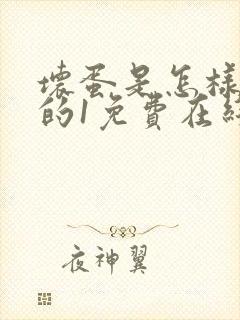 壞蛋是怎樣
的1免費在線
夜神翼